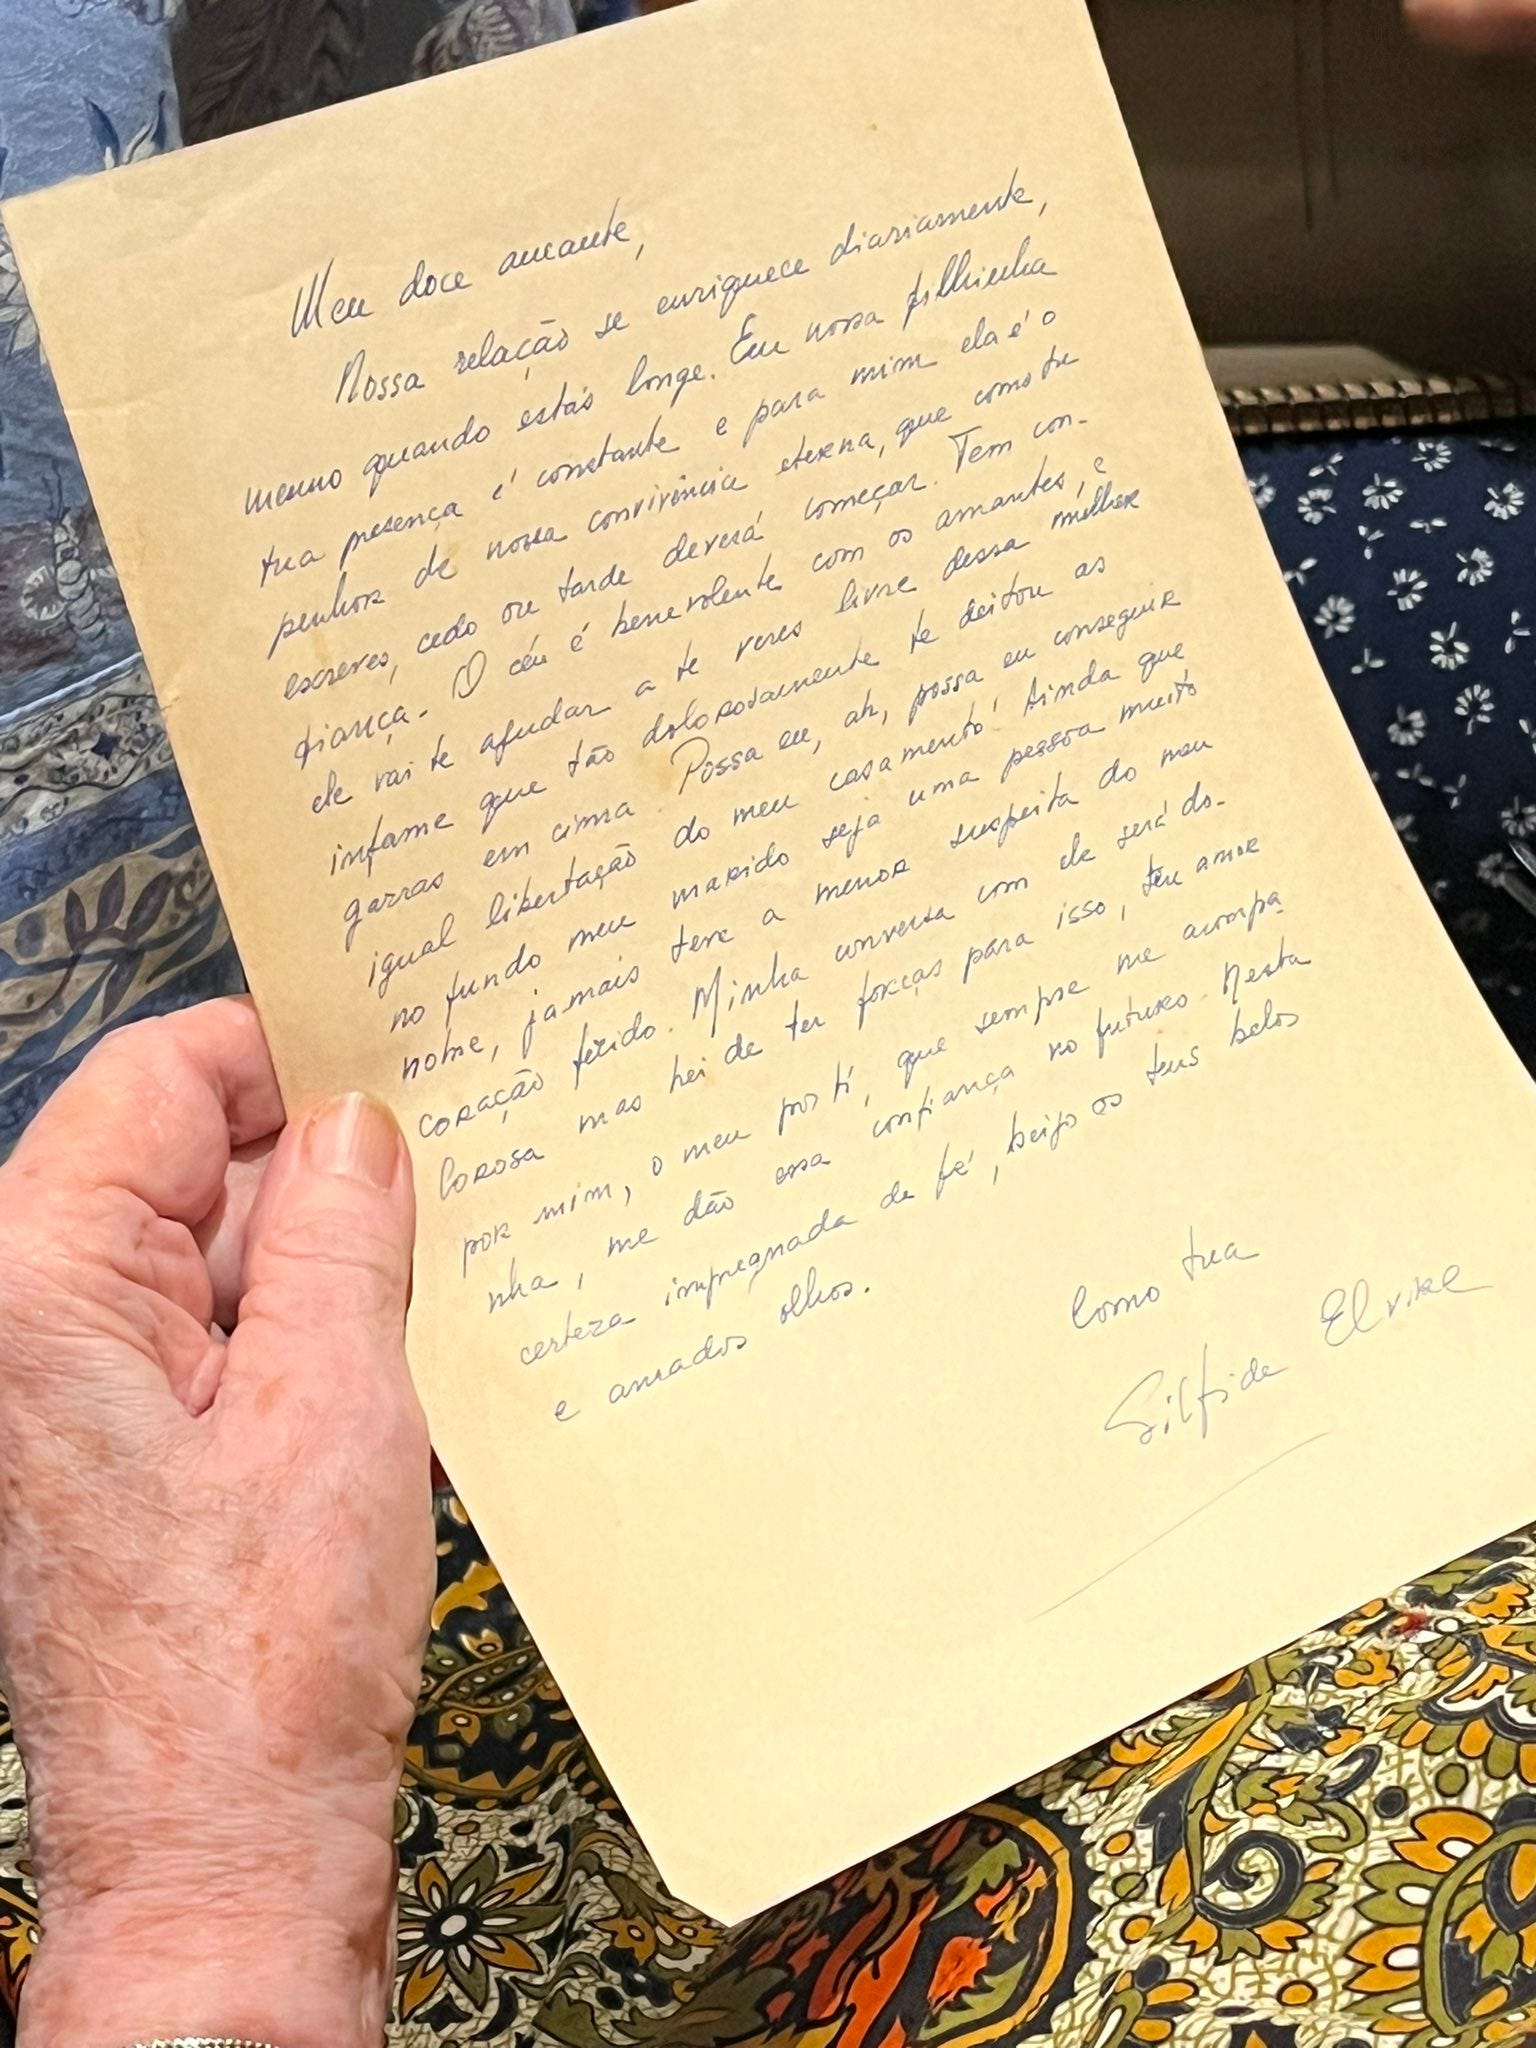 Meu doce amante,
Nossa relação se enriquece diariamente,
mesmo quando estás longe. Em nossa filhinha
tua presença é constante e para mim ela é o
penhor de nossa convivência eterna, que como tu
escreves, cedo ou tarde deverá começar. Tem con-
fiança. O céu é benevolente com os amantes, e
ele vai te ajudar a te veres livre dessa mulher
infame que tão dolorosamente te deitou as
garras em cima. Possa eu, ah, possa eu conseguir
igual libertação do meu casamento! Ainda que
no fundo meu marido seja uma pessoa muito
nobre, jamais teve a menor suspeita do meu
coração ferido. Minha conversa com ele será do-
lorosa mas hei de ter forças para isso, teu amor
por mim, o meu por ti, que sempre me acompa
nha, me dão essa confiança no futuro. Nesta
certeza impregnada de fé, beijo os teus belos
e amados olhos.
Como tua
Silfide Elvire